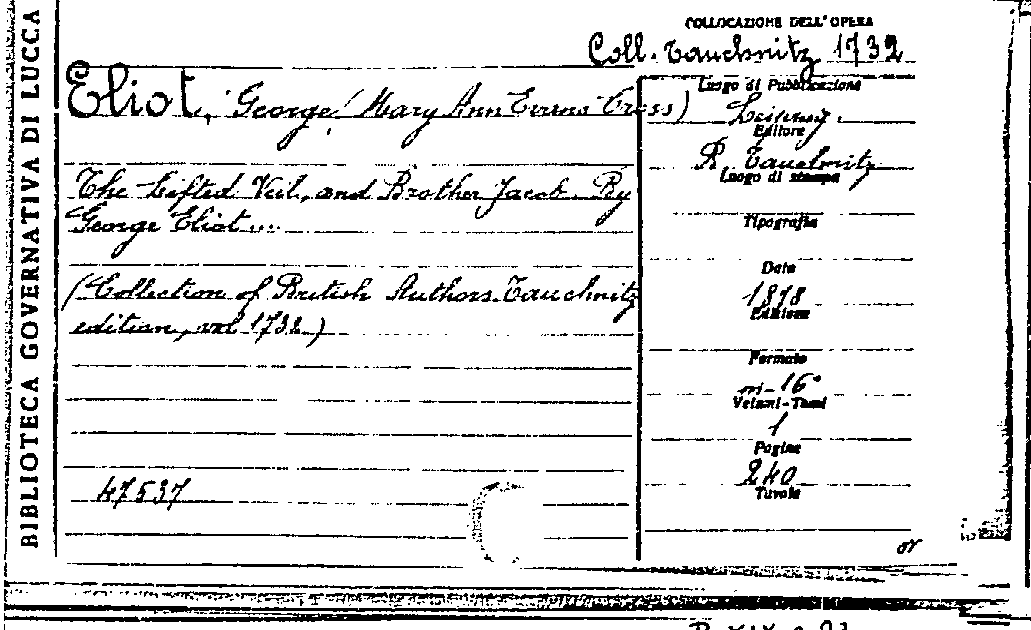 BIBLIOTECA GOVERNATIVA DI LUCCA
COLLOCAZIONE DELL'OPERA
Coll. Tauchnitz 1732
Eliot, George (Mary Ann Evans Cross)
The Lifted Veil, and Brother Jacob. By
George Eliot ....
(Collection of British Authors Tauchnitz
edition, vol 1732)
47537
Luogo di Pubblicazione
Leipzig.
Editore
Tauchnitz
Luogo di stampa
Tipografia
Data
1878
Edizione
Formato
in-16°
Volumi-Tomi
1
Pagine
240
Tavole